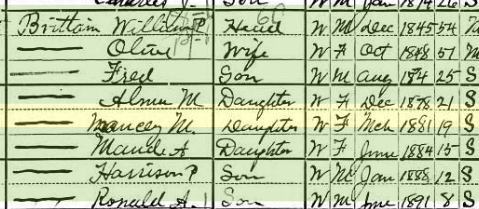 Son W M Jan 1874 26 S
Brittain William P. Head W M Dec 1845 54 M
Olive Wife W F Oct 1848 51 M
Fred Son W M Aug 1874 25 S
Alma M Daughter W F Dec 1878 21 S
Nancy M. Daughter W F Mch 1881 19 S
Maude A Daughter W F June 1884 15 S
Harrison P Son W M Jan 1888 12 S
Ronald A. Son W M June 1891 8 S